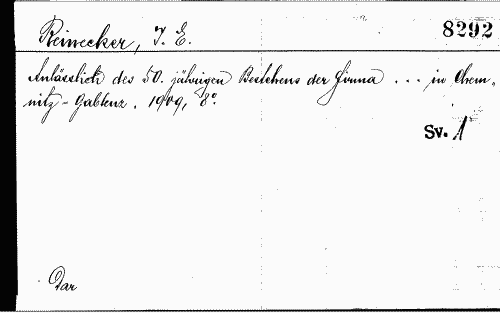 8292
Reinecker, J. E.
Anlässlich des 50. jährigen Bestehens der Firma ... in Chem-
nitz-Gablenz. 1909, 8°.
Sv. 1
Dar